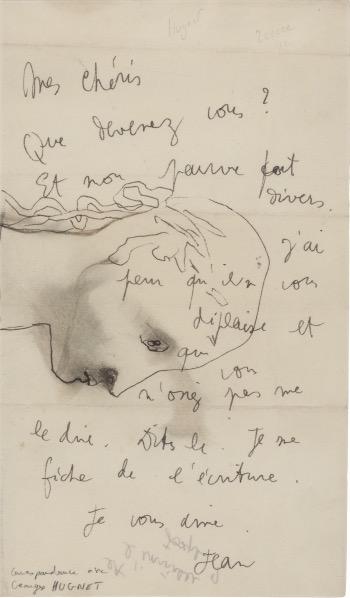 Hugnet
Mes chéris
Que devenez vous ?
Et mon pauvre fait
divers.
j'ai
peur qu'il vous
déplaise et
que vous
n'osiez pas me
le dire. Dites le. Je me
fiche de l'écriture.
Je vous aime
Jean
Correspondance avec
Georges HUGNET